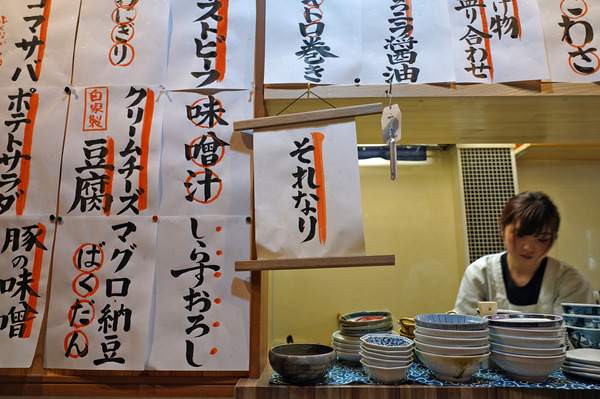 ゴマサバ
おにぎり
ーストビーフ
トロ巻き
ニラ醤油
げ物
盛り合わせ
わさ
ポテトサラダ
自家製
クリームチーズ
豆腐
味噌汁
それなり
豚の味噌
マグロ納豆
ばくだん
しらすおろし